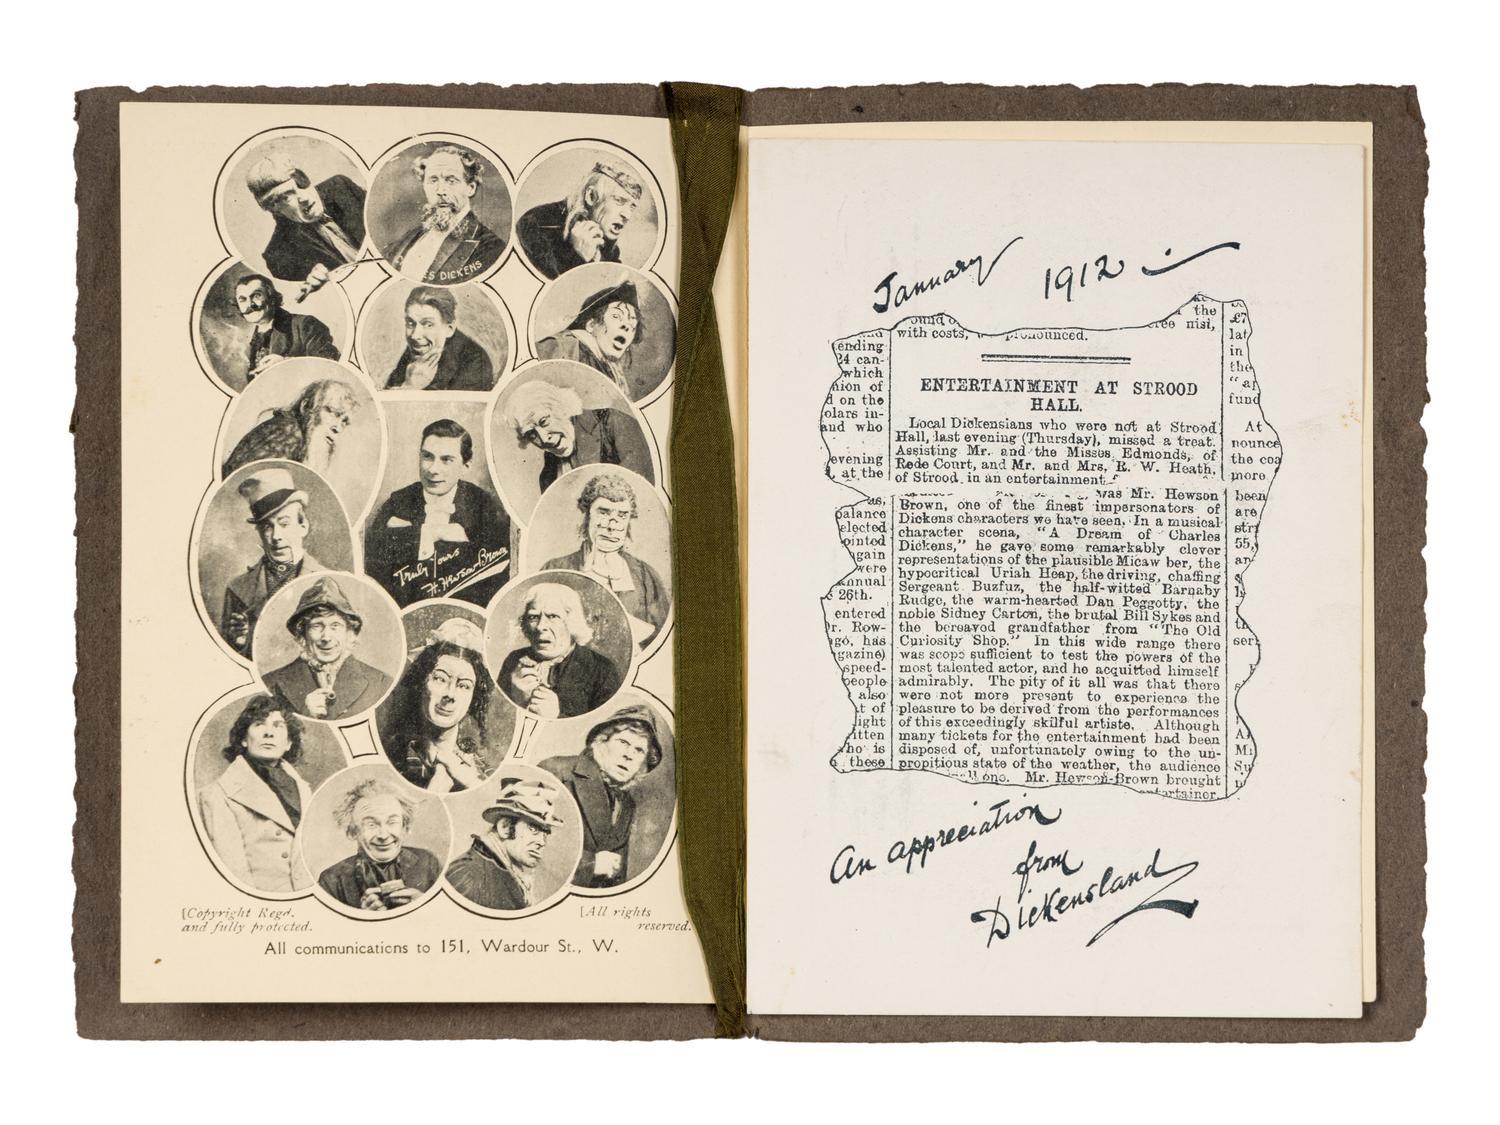 ES DICKENS
Truly Yours
H. Hewson Brown
[Copyright Regd.
and fully protected.
[All rights
reserved.
All communications to 151, Wardour St., W.
January 1912
the
with costs, pronounced.
nisi,
ENTERTAINMENT AT STROOD
HALL.
Local Dickensians who were not at Strood
Hall, last evening (Thursday), missed a treat.
Assisting Mr. and the Misses Edmonds, of
Rede Court, and Mr. and Mrs. R. W. Heath,
of Strood in an entertainment
was Mr. Hewson
Brown, one of the finest impersonators of
Dickens characters we have seen. In a musical
character scena, "A Dream of Charles
Dickens," he gave some remarkably clever
representations of the plausible Micaw ber, the
hypocritical Uriah Heap, the driving, chaffing
Sergeant Buzfuz, the half-witted Barnaby
Rudge, the warm-hearted Dan Peggotty, the
noble Sidney Carton, the brutal Bill Sykes and
the bereaved grandfather from "The Old
Curiosity Shop." In this wide range there
was scope sufficient to test the powers of the
most talented actor, and he acquitted himself
admirably. The pity of it all was that there
were not more present to experience the
pleasure to be derived from the performances
of this exceedingly skilful artiste. Although
many tickets for the entertainment had been
disposed of, unfortunately owing to the un-
propitious state of the weather, the audience
one. Mr. Hewson-Brown brought
entertainer.
ending
24 can-
which
nion of
d on the
olars in-
and who
evening
at the
as,
palance
elected
ointed
gain
were
annual
26th.
entered
r. Row-
go, has
gazine)
speed-
people
also
t of
light
itten
who is
these
£7
lat
in
the
"a
fund
At
nounce
the coa
more
been
are
str
55,
an
ser
An appreciation
from
Dickensland